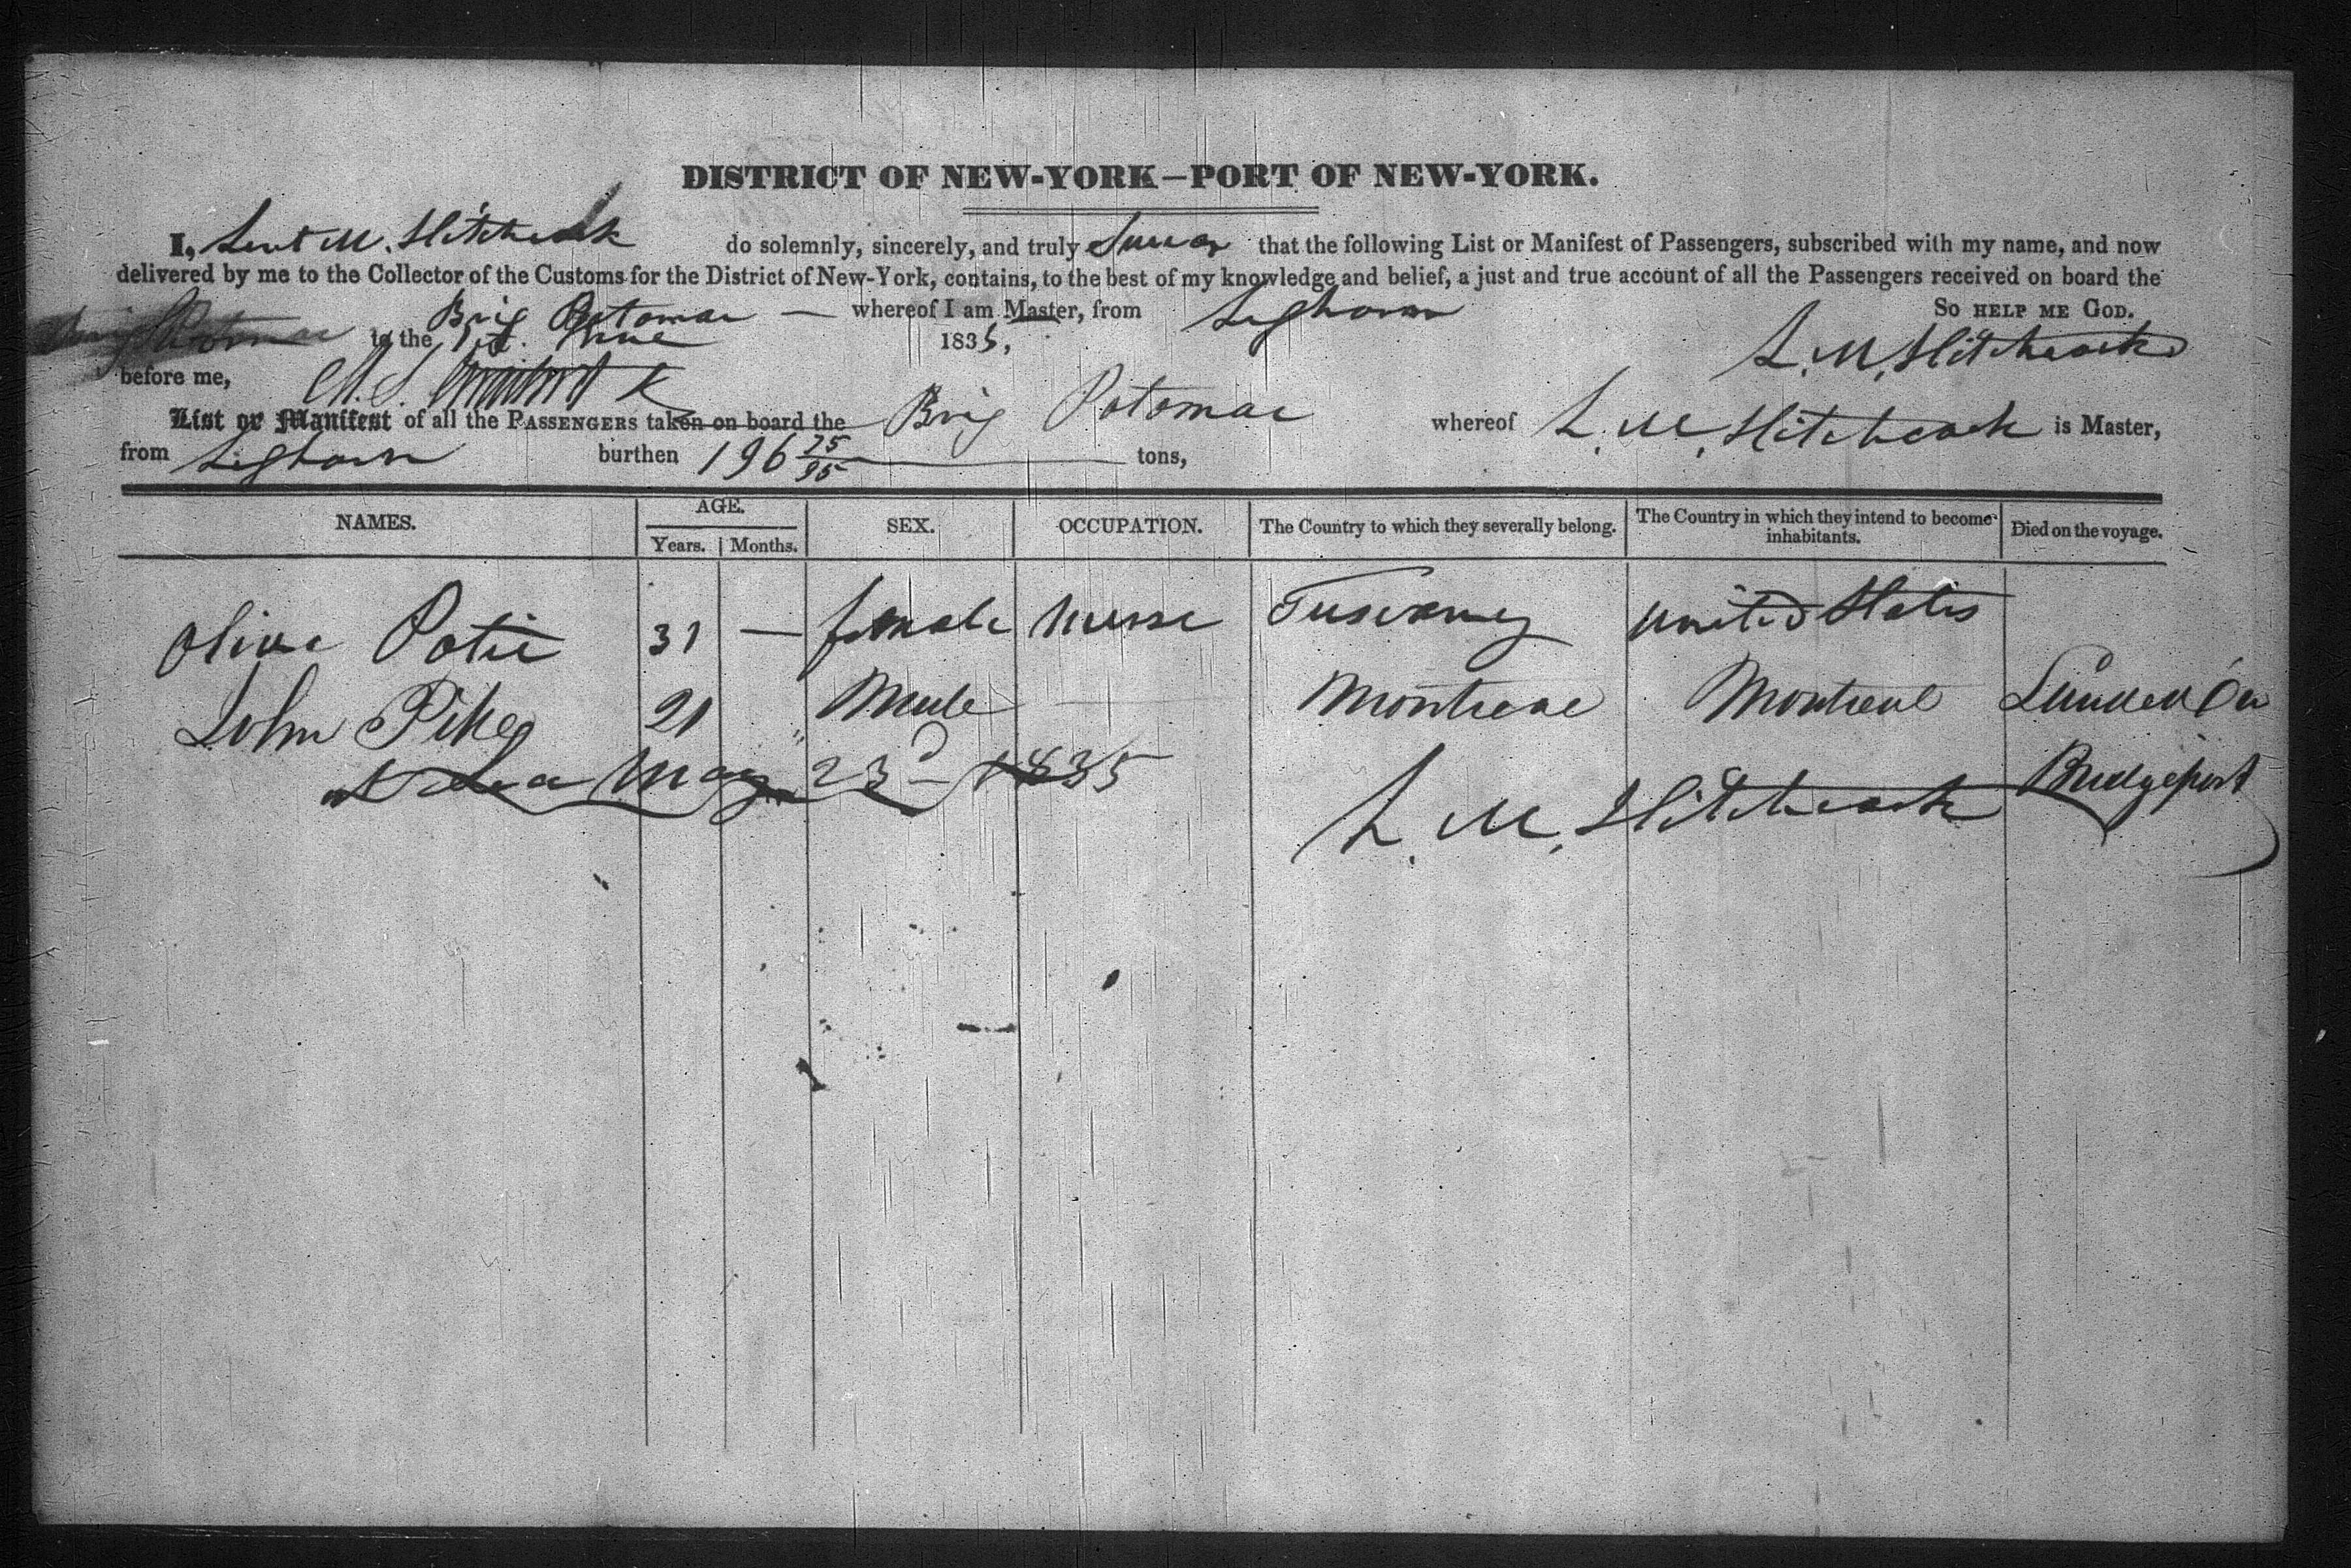 DISTRICT OF NEW-YORK—PORT OF NEW-YORK.
I, M. Hitchcock do solemnly, sincerely, and truly Swear that the following List or Manifest of Passengers, subscribed with my name, and now
delivered by me to the Collector of the Customs for the District of New-York, contains, to the best of my knowledge and belief, a just and true account of all the Passengers received on board the
Brig Potomac — whereof I am Master, from Leghorn So HELP ME GOD.
to the 1st. June 1835, L. M. Hitchcock
before me,
List or Manifest of all the PASSENGERS taken on board the Brig Potomac whereof L. M. Hitchcock is Master,
from Leghorn burthen 196 75/95 tons,
NAMES. AGE. Years. Months. SEX. OCCUPATION. The Country to which they severally belong. The Country in which they intend to become inhabitants. Died on the voyage.
Oliva Potie 31 — female Nurse Tuscany United States
John Pike 21 " Male — Montreal Montreal
at Sea May 23d – 1835 Bridgeport
L. M. Hitchcock